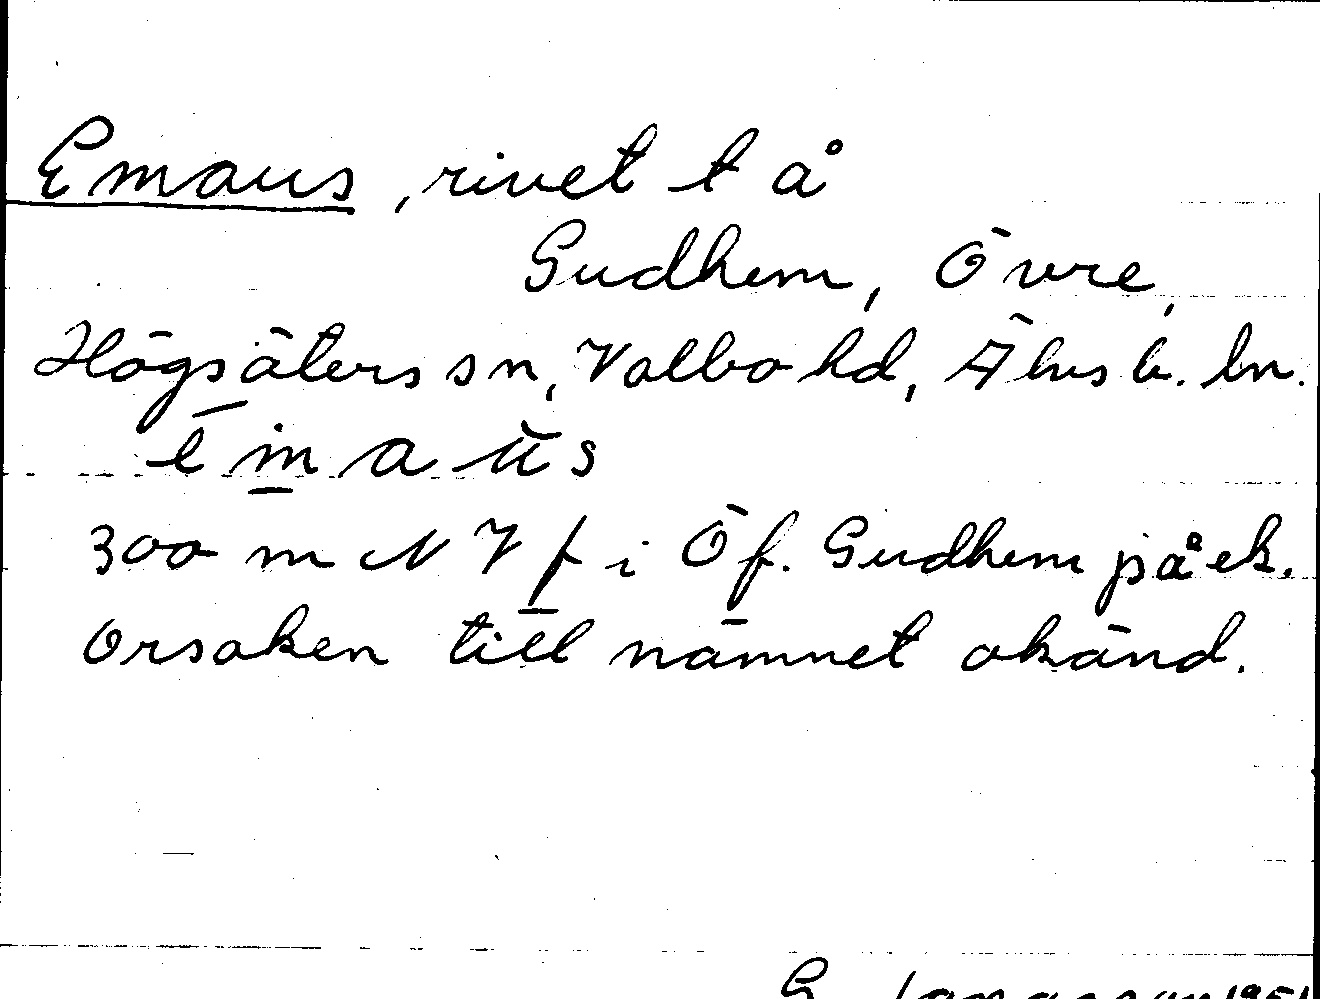 Emaus, rivet t å
Gudhem, Övre,
Högsäters sn, Valbo hd, Älvsb. ln.
ēmaŭs
300 m NV f i Öf. Gudhem på ek.
Orsaken till nämnet okänd.
G